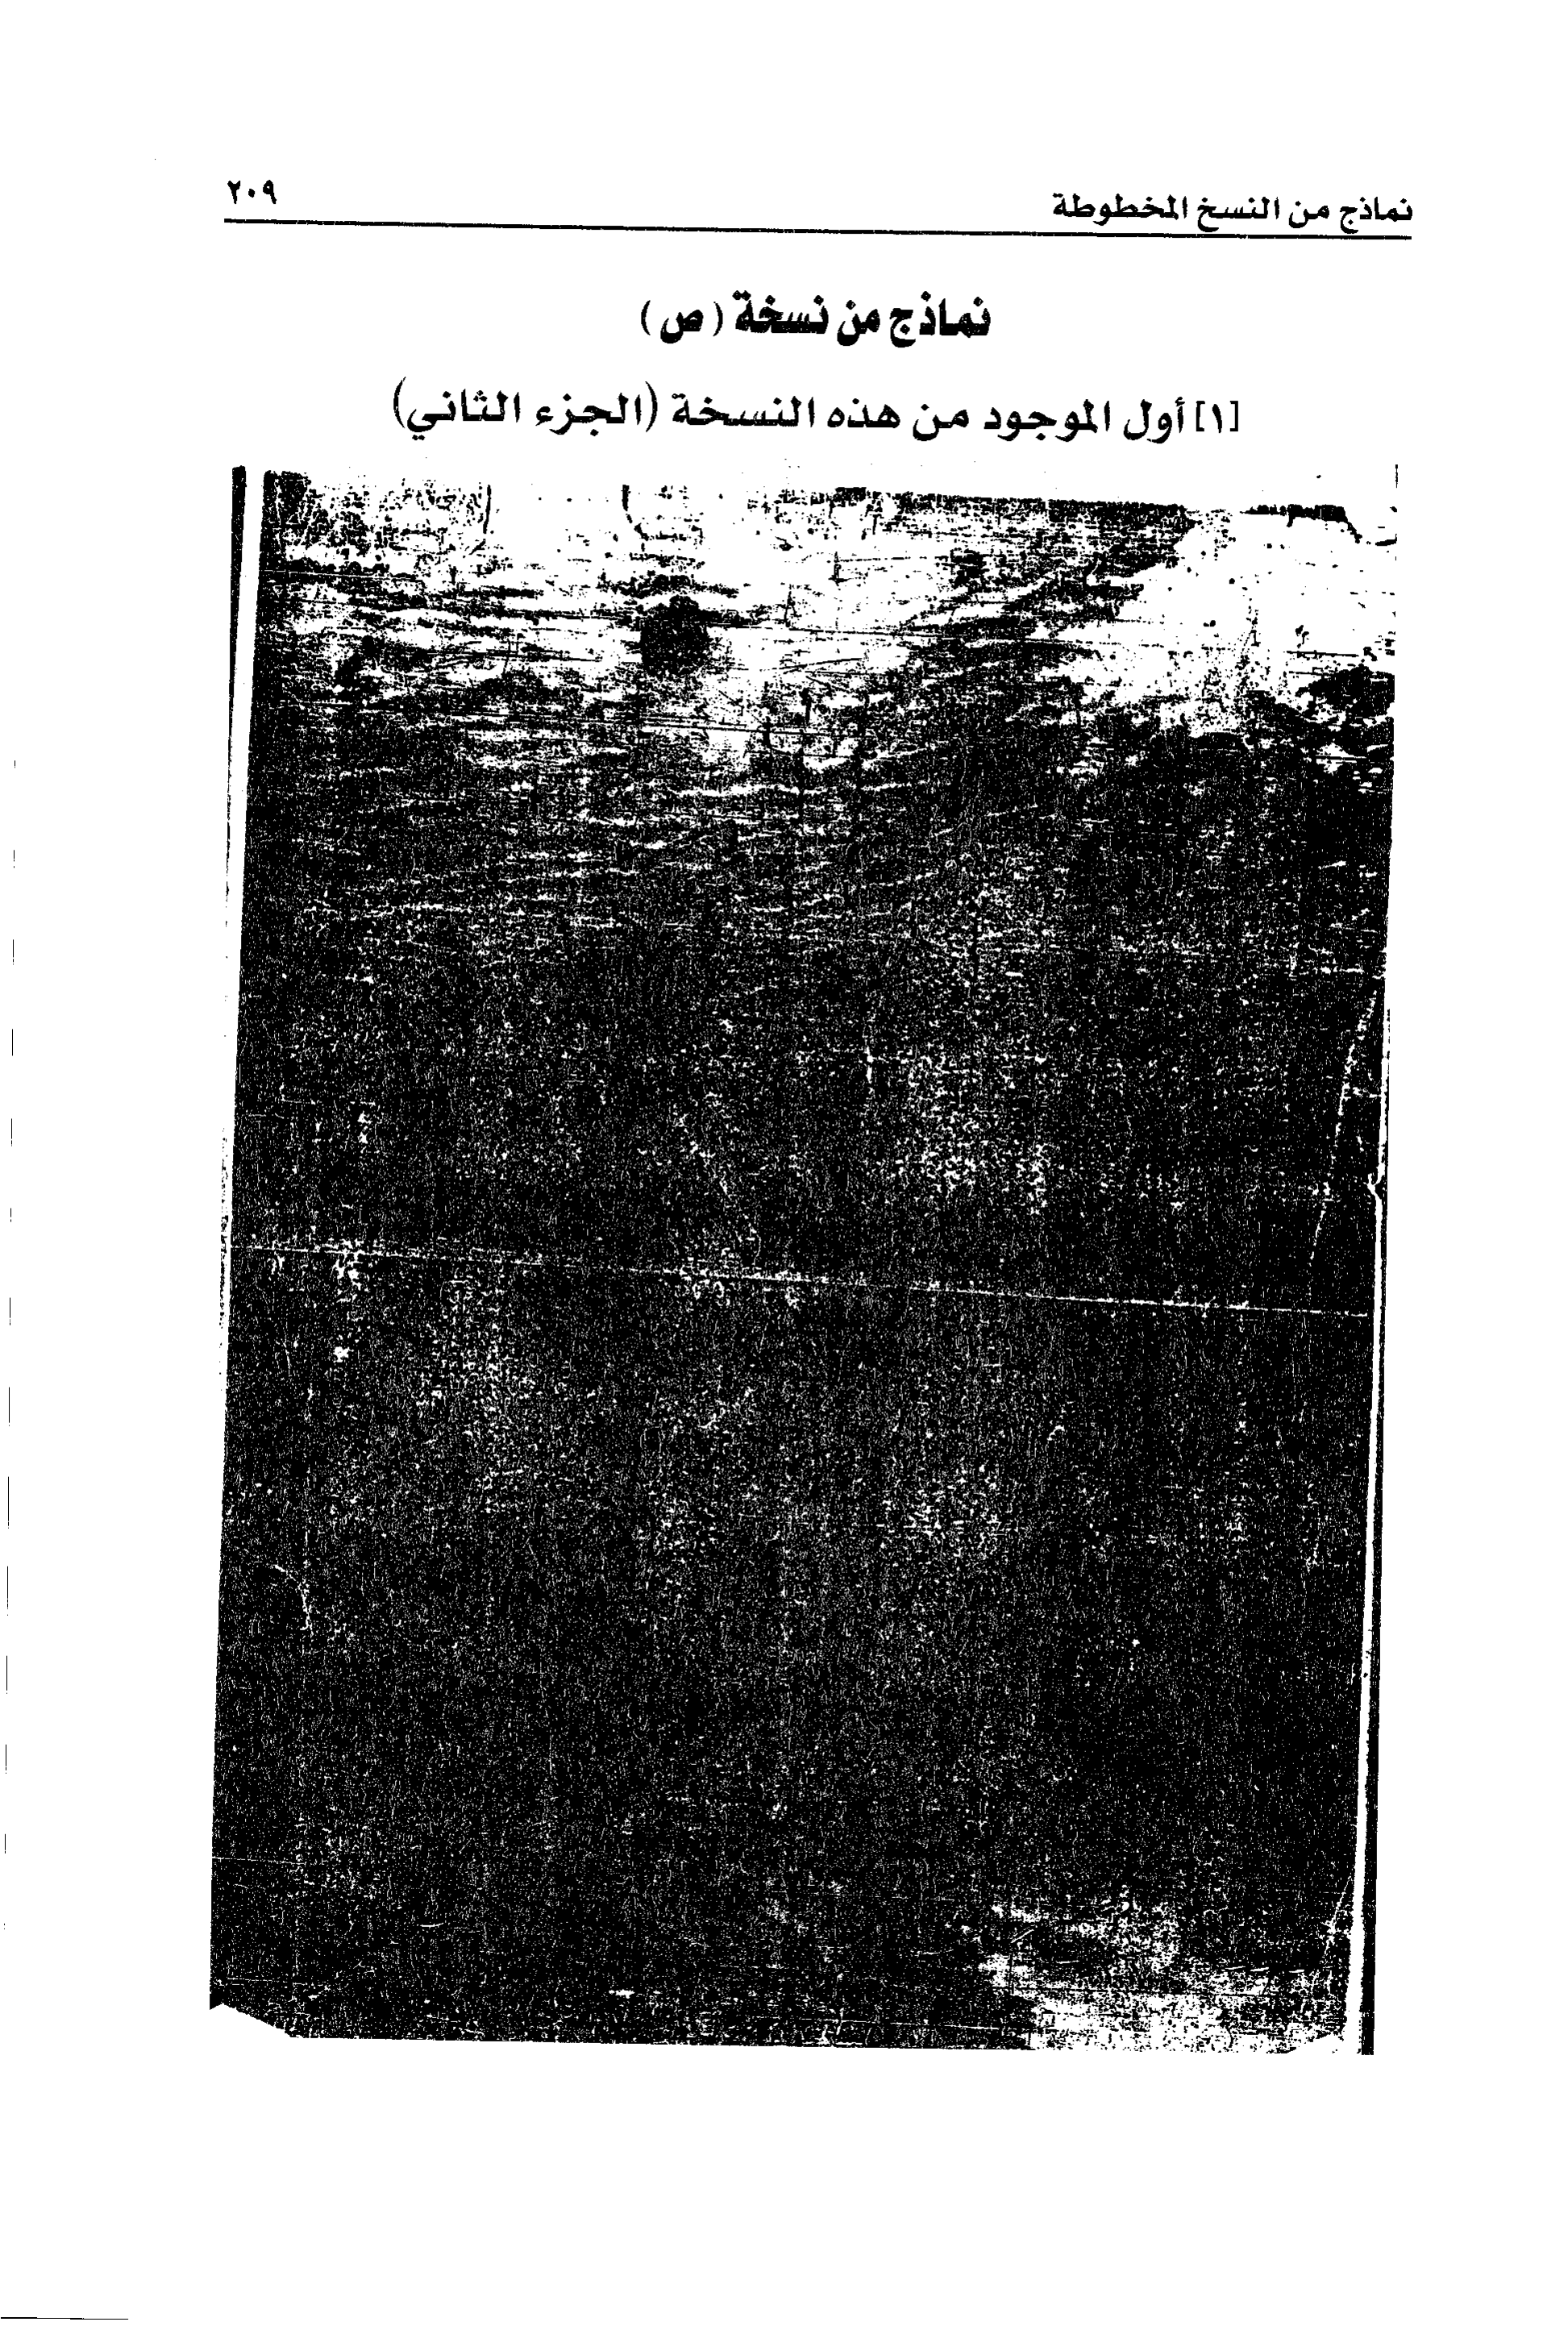 نماذج من النسخ المخطوطة ٢٠٩
نماذج من نسخة (ص)
[١] أول الموجود من هذه النسخة (الجزء الثاني)